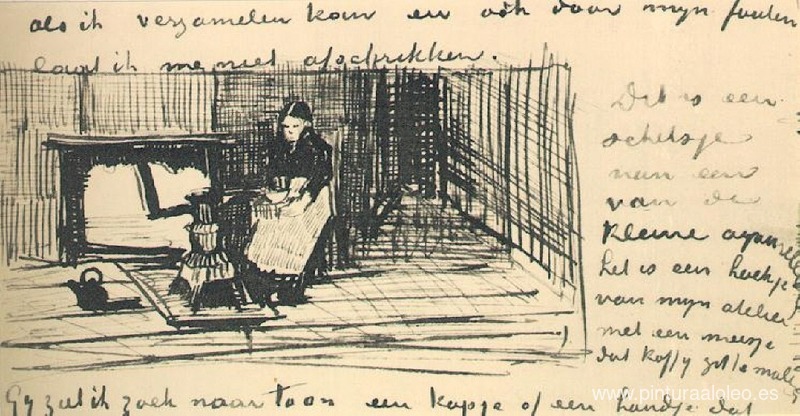 als ik verzamelen kan en ook door mijn fouten
laat ik me niet afschrikken.
Dit is een
schetsje
van een
van de
kleine aquarellen
het is een hoekje
van mijn atelier
met een meisje
dat koffy zit te malen
Gy ziet ik zoek naar toon een kopje of een handje dat
www.pinturaaloleo.es